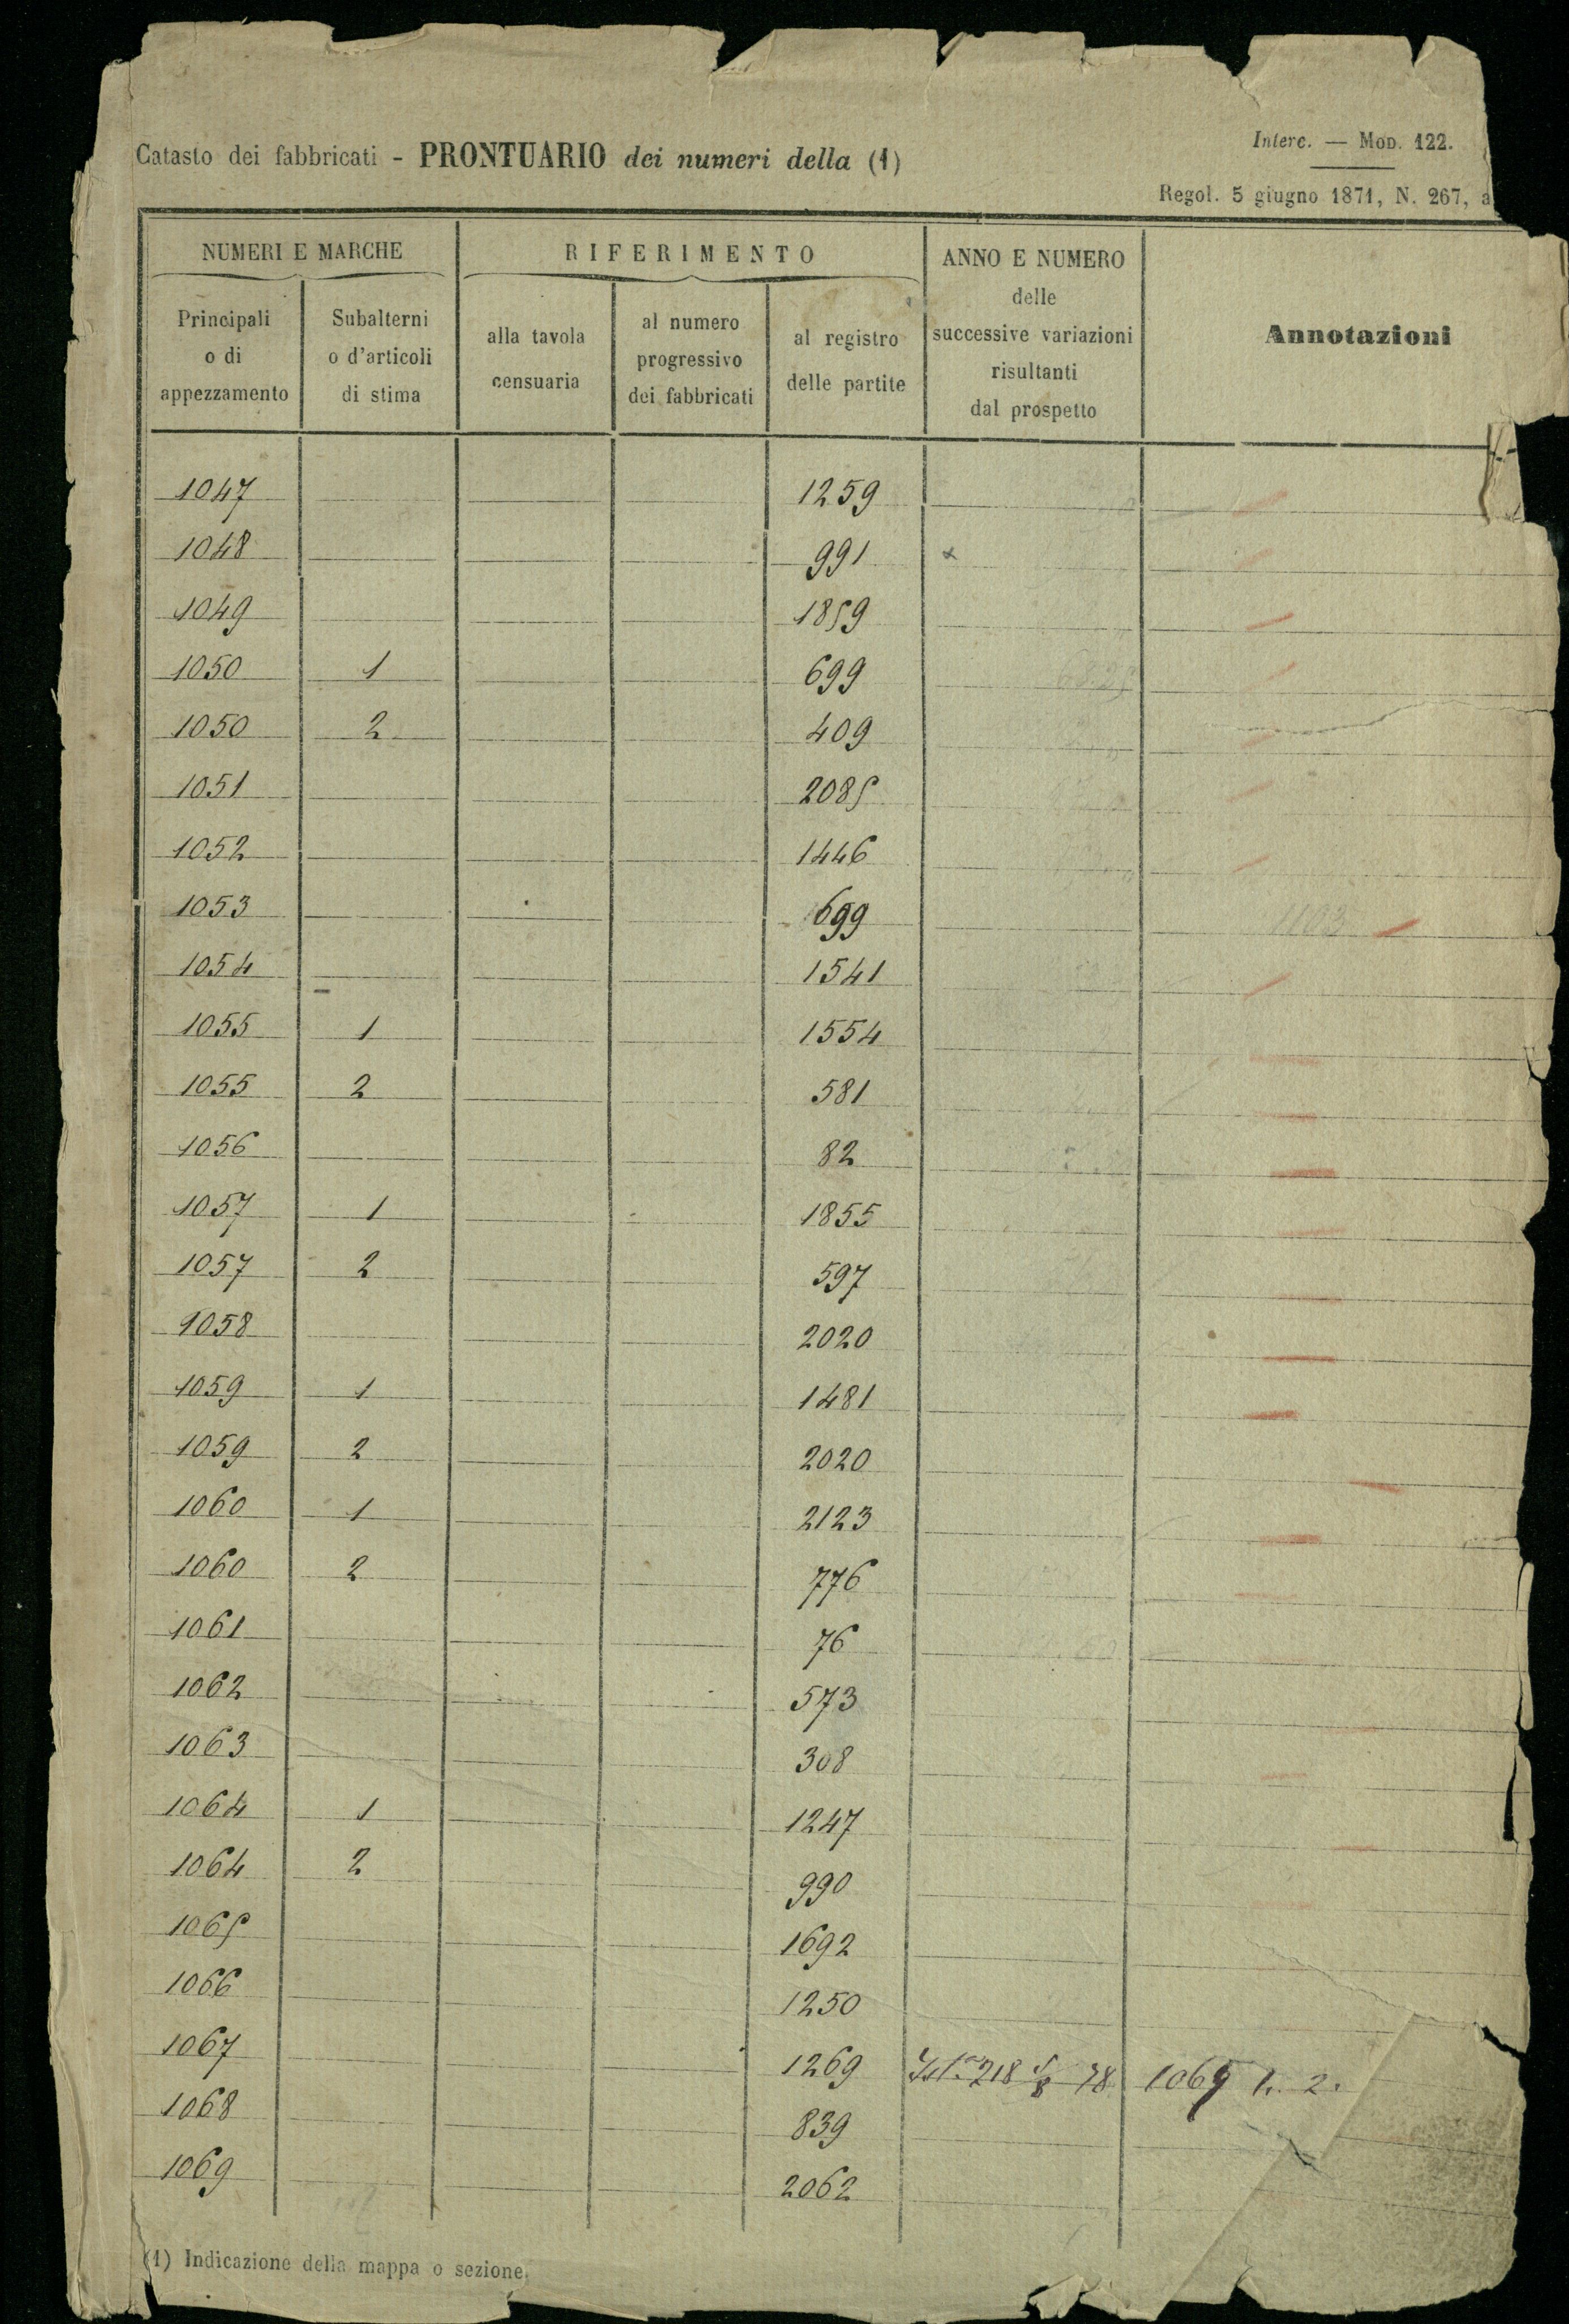 Interc. — Mod. 122.
Catasto dei fabbricati - PRONTUARIO dei numeri della (1)
Regol. 5 giugno 1871, N. 267, a
NUMERI E MARCHE
RIFERIMENTO
ANNO E NUMERO
delle
successive variazioni
risultanti
dal prospetto
Annotazioni
Principali
o di
appezzamento
Subalterni
o d'articoli
di stima
alla tavola
censuaria
al numero
progressivo
dei fabbricati
al registro
delle partite
1047 1259
1048 991 x
1049 1859
1050 1 699
1050 2 409
1051 2085
1052 1446
1053 699 103
1054 1541
1055 1 1554
1055 2 581
1056 82
1057 1 1855
1057 2 597
1058 2020
1059 1 1481
1059 2 2020
1060 1 2123
1060 2 776
1061 76
1062 573
1063 308
1064 1 1247
1064 2 990
1065 1692
1066 1250
1067 1269 218 78 1067 1. 2.
1068 839
1069 2062
(1) Indicazione della mappa o sezione.